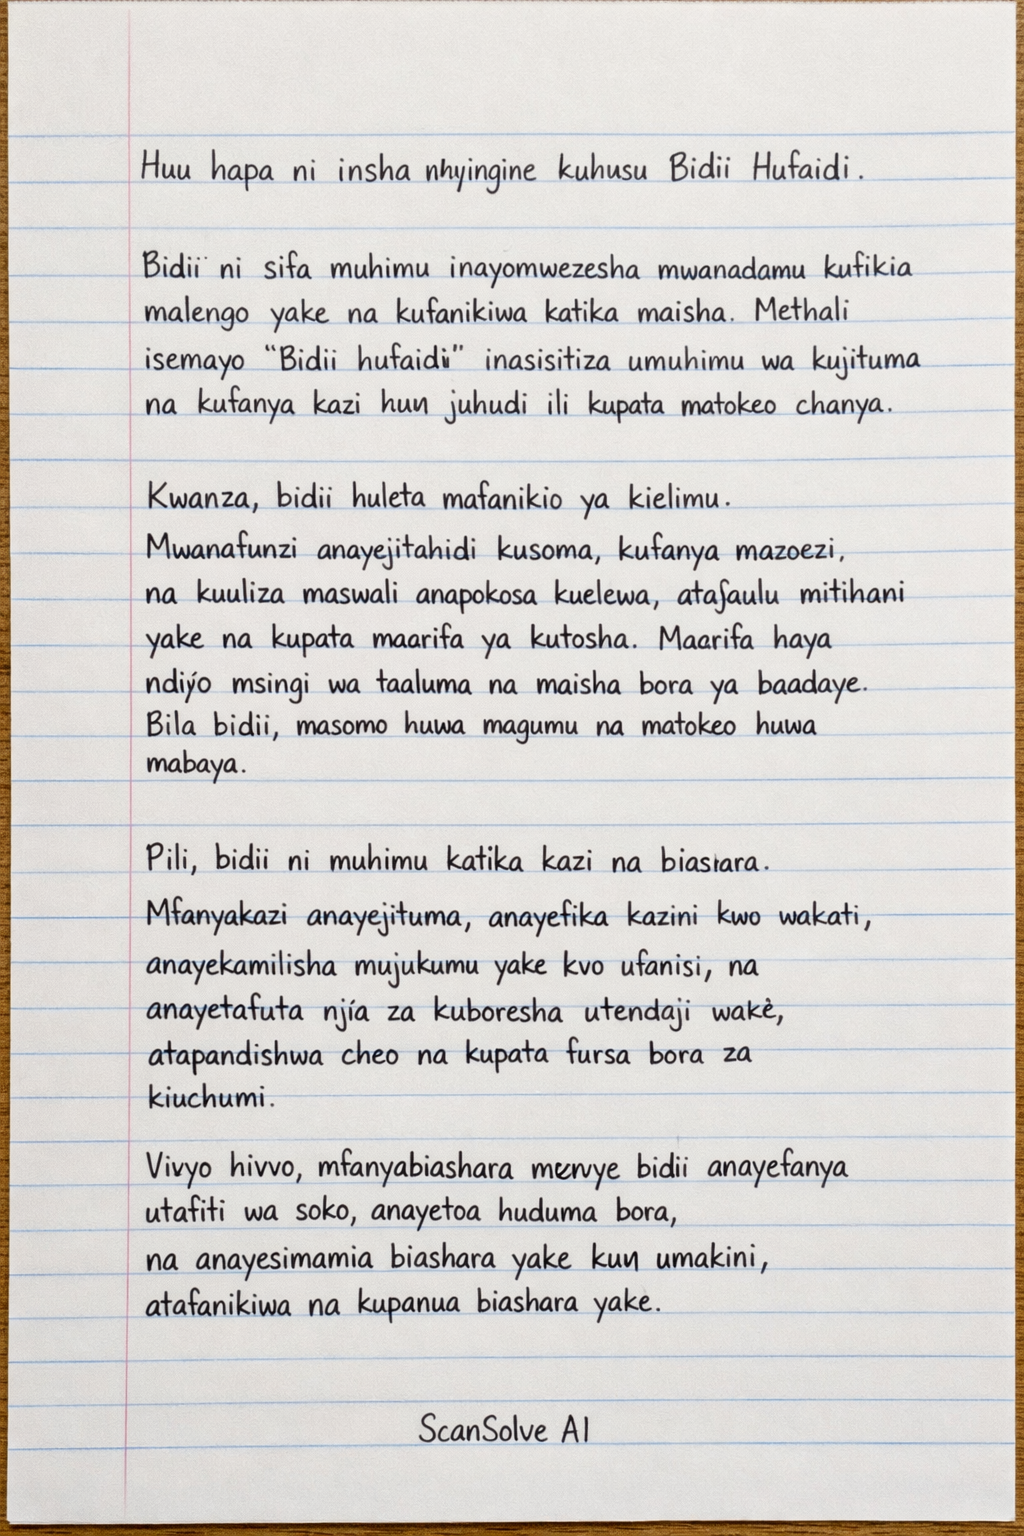 Huu hapa ni insha nhyingine kuhusu Bidii Hufaidi.
Bidii ni sifa muhimu inayomwezesha mwanadamu kufikia
malengo yake na kufanikiwa katika maisha. Methali
isemayo "Bidii hufaidi" inasisitiza umuhimu wa kujituma
na kufanya kazi hun juhudi ili kupata matokeo chanya.
Kwanza, bidii huleta mafanikio ya kielimu.
Mwanafunzi anayejitahidi kusoma, kufanya mazoezi,
na kuuliza maswali anapokosa kuelewa, atafaulu mitihani
yake na kupata maarifa ya kutosha. Maarifa haya
ndiyo msingi wa taaluma na maisha bora ya baadaye.
Bila bidii, masomo huwa magumu na matokeo huwa
mabaya.
Pili, bidii ni muhimu katika kazi na biasıara.
Mfanyakazi anayejituma, anayefika kazini kwo wakati,
anayekamilisha mujukumu yake kvo ufanisi, na
anayetafuta njía za kuboresha utendaji wakè,
atapandishwa cheo na kupata fursa bora za
kiuchumi.
Vivyo hivvo, mfanyabiashara bidii anayefanya
utafiti wa soko, anayetoa huduma bora,
na anayesimamia biashara yake kun umakini,
atafanikiwa na kupanua biashara yake.
ScanSolve AI